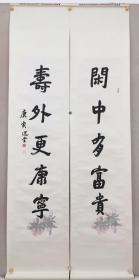 閑中多富貴
壽外更康寧
庚寅